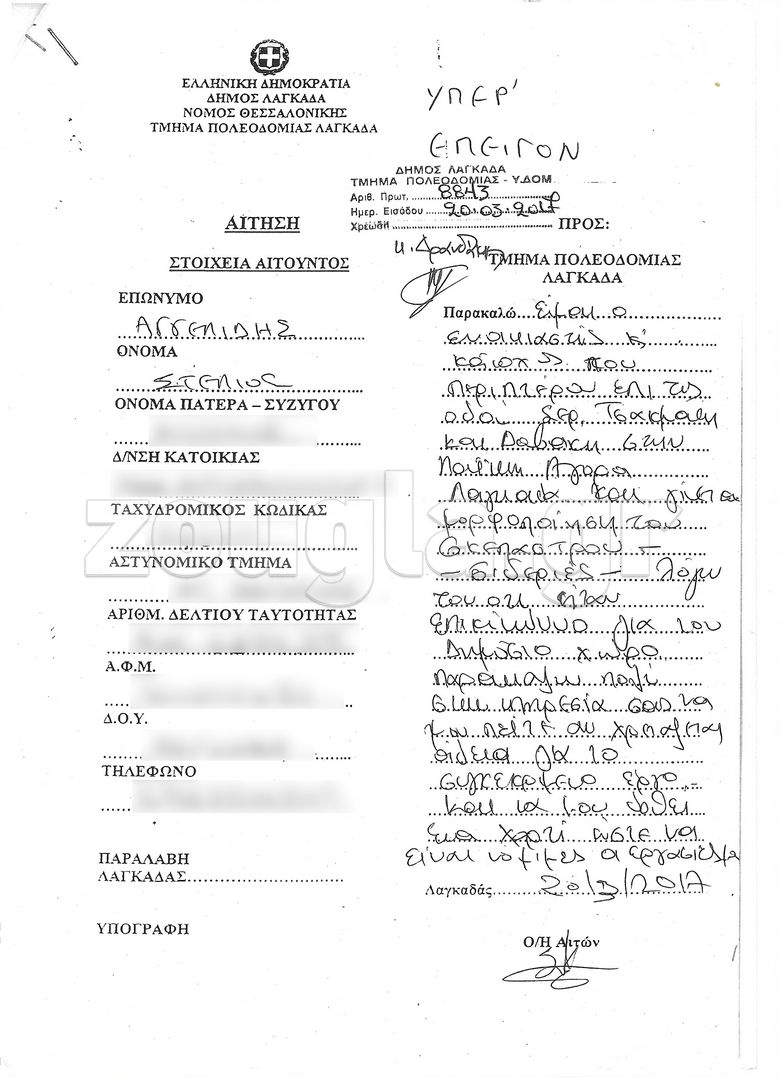 ΕΛΛΗΝΙΚΗ ΔΗΜΟΚΡΑΤΙΑ
ΔΗΜΟΣ ΛΑΓΚΑΔΑ
ΝΟΜΟΣ ΘΕΣΣΑΛΟΝΙΚΗΣ
ΤΜΗΜΑ ΠΟΛΕΟΔΟΜΙΑΣ ΛΑΓΚΑΔΑ
ΥΠΕΡ'
ΕΠΕΙΓΟΝ
ΔΗΜΟΣ ΛΑΓΚΑΔΑ
ΤΜΗΜΑ ΠΟΛΕΟΔΟΜΙΑΣ - Υ.ΔΟΜ
Αριθ. Πρωτ. 8843
Ημερ. Εισόδου 20.03.2017
Χρέωση
ΑΙΤΗΣΗ
ΣΤΟΙΧΕΙΑ ΑΙΤΟΥΝΤΟΣ
ΕΠΩΝΥΜΟ
ΑΓΓΕΛΙΔΗΣ
ΟΝΟΜΑ
ΣΤΕΛΙΟΣ
ΟΝΟΜΑ ΠΑΤΕΡΑ – ΣΥΖΥΓΟΥ
Δ/ΝΣΗ ΚΑΤΟΙΚΙΑΣ
ΤΑΧΥΔΡΟΜΙΚΟΣ ΚΩΔΙΚΑΣ
ΑΣΤΥΝΟΜΙΚΟ ΤΜΗΜΑ
ΑΡΙΘΜ. ΔΕΛΤΙΟΥ ΤΑΥΤΟΤΗΤΑΣ
Α.Φ.Μ.
Δ.Ο.Υ.
ΤΗΛΕΦΩΝΟ
ΠΑΡΑΛΑΒΗ
ΛΑΓΚΑΔΑΣ
ΥΠΟΓΡΑΦΗ
ΠΡΟΣ:
ΤΜΗΜΑ ΠΟΛΕΟΔΟΜΙΑΣ
ΛΑΓΚΑΔΑ
Παρακαλώ Είμαι ο
ενοικιαστής κ'
κάτοχος του
περιπτέρου επί της
οδού Τσακμάκη
και στην
Αγορά
Λαγκαδά και γίνεται
μορφοποίηση του
σκεπάστρου –
– σιδεριές – λόγω
του ότι ήταν
επικίνδυνο για τον
Δημόσιο χώρο
παρακαλώ πολύ
στην υπηρεσία σας να
μου πείτε αν χρειάζεται
άδεια για το
συγκεκριμένο έργο
και να μου δοθεί
ένα χαρτί ώστε να
είναι νόμιμες οι εργασίες μα
Λαγκαδάς 20/3/2017
Ο/Η Αιτών
zougla.gr